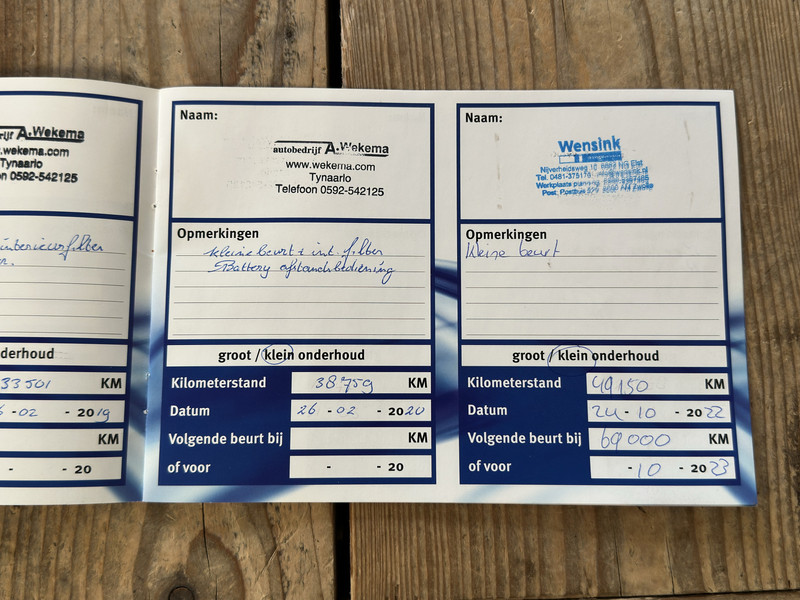 rijf A.Wekema
.wekema.com
Tynaarlo
on 0592-542125
interieurfilter
derhoud
33501 KM
-02 - 2019
KM
- - 20
Naam:
autobedrijf A.Wekema
www.wekema.com
Tynaarlo
Telefoon 0592-542125
Opmerkingen
kleine beurt + int. filter
Battery afstandsbediening
groot / klein onderhoud
Kilometerstand 38759 KM
Datum 26 - 02 - 2020
Volgende beurt bij KM
of voor - - 20
Naam:
Wensink
Nijverheidsweg 10 Elst
Tel. 0481-375
Werkplaats
Post: Postbus Zwolle
Opmerkingen
kleine beurt
groot / klein onderhoud
Kilometerstand 49150 KM
Datum 24 - 10 - 2022
Volgende beurt bij 69000 KM
of voor - 10 - 2023